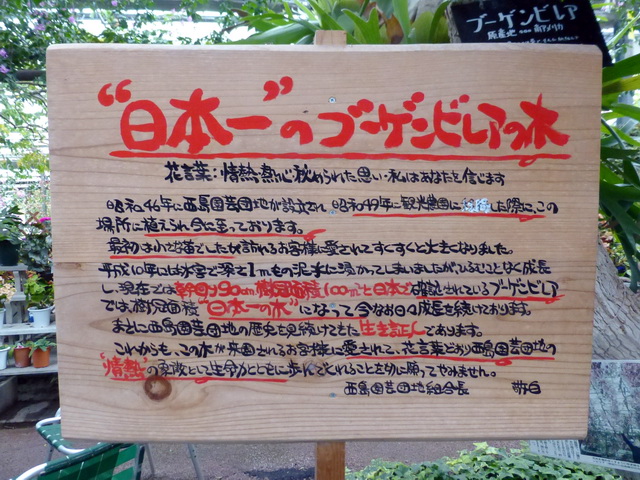 ブーゲンビレア
原産地 ••• 南アメリカ
“日本一”のブーゲンビレアの木
花言葉：情熱・熱心・秘められた思い・私はあなたを信じます
昭和46年に西島園芸団地が設立され、昭和49年に観光農園に移行した際に、この
場所に植えられ今に至っております。
最初は小さな苗でしたが訪れるお客様に愛されてすくすくと大きくなりました。
平成10年には水害で深さ1mもの泥水に浸かってしまいましたが、枯るることなく成長
し、現在では幹回り90cm、樹冠面積100㎡と日本で確認されているブーゲンビレア
では、樹冠面積“日本一の木”になって今なお日々成長を続けております。
まさに西島園芸団地の歴史を見続けてきた生き証人であります。
これからも、この木が来園されるお客様に愛されて、花言葉どおり西島園芸団地の
“情熱”の象徴として生命力とともに歩んでくれることを切に願ってやみません。
西島園芸団地組合長 敬白